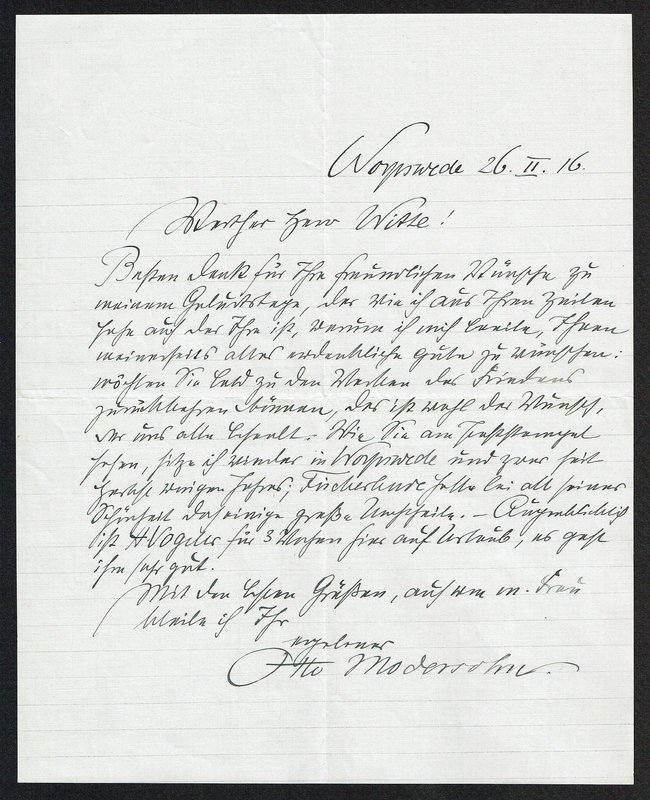 Worpswede 26. II. 16.
Werther Herr Witte!
Besten Dank für Ihre freundlichen Wünsche zu
meinem Geburtstage, der wie ich aus Ihren Zeilen
sehe auch der Ihre ist, warum ich mich beeile, Ihnen
meinerseits alles erdenkliche Gute zu wünschen:
möchten Sie bald zu den Werken des Friedens
zurückkehren können, das ist wohl der Wunsch,
der uns alle beseelt. Wie Sie am Poststempel
sehen, sitze ich wieder in Worpswede und zwar seit
Herbst vorigen Jahres; Fischerhude hatte bei all seiner
Schönheit doch einige große Nachtheile. – Augenblicklich
ist H Vogeler für 3 Wochen hier auf Urlaub, es geht
ihm sehr gut.
Mit den besten Grüßen, auch von m. Frau
bleibe ich Ihr
ergebener
Otto Modersohn.